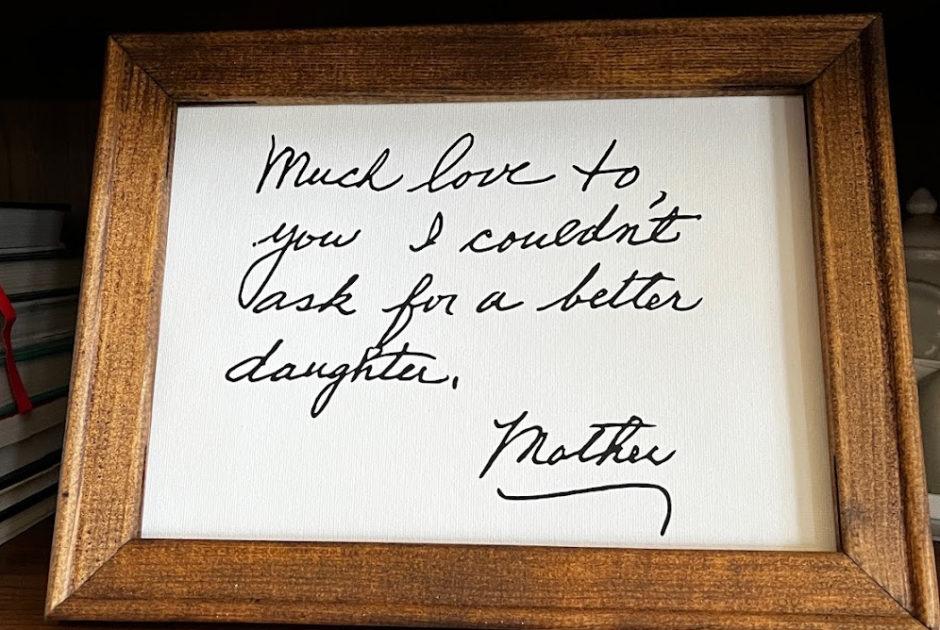 Much love to
you I couldn't
ask for a better
daughter.
Mother